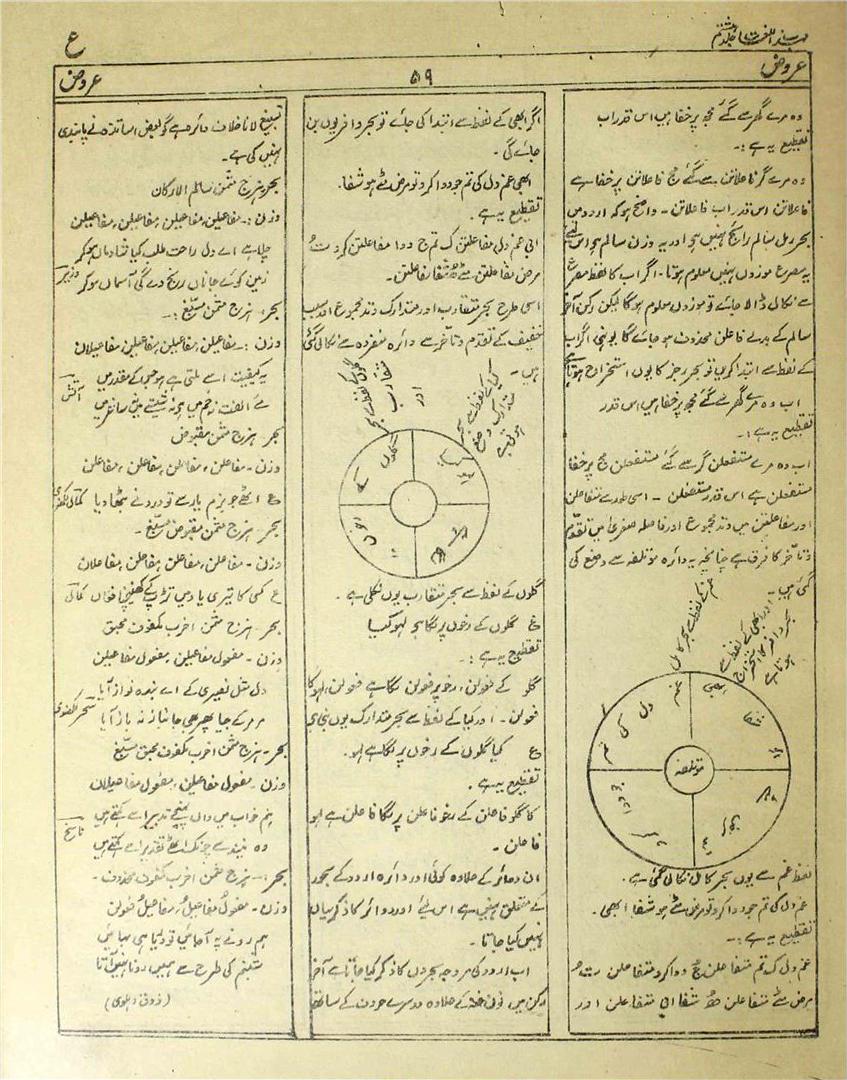 مہذب اللغت جلد ہشتم
ع
عروض
۵۹
عروض
وہ مرے گھر سے گئے مجھ پر خفا ہیں اس قدر اب
تقطیع یہ ہے :۔
وہ مرے گر فاعلاتن سے گئے مج فاعلاتن پر خفا ہے
فاعلاتن اس قدر اب فاعلاتن ۔ واضح ہو کہ اردو میں
بحر رمل سالم رائج نہیں ہے اور یہ وزن سالم ہے اس لئے
یہ مصرع موزوں نہیں معلوم ہوتا ۔ اگر اب کا لفظ مصرع
سے نکال ڈالا جائے تو موزوں معلوم ہوگا لیکن رکن آخر
سالم کے بدلے فاعلن محذوف ہو جائے گا یونہی اگر اب
کے لفظ سے ابتدا کریں تو بحر رجز کا یوں استخراج ہوتا ہے
اب وہ مرے گھر سے گئے مجھ پر خفا ہیں اس قدر
تقطیع یہ ہے :۔
اب وہ مرے مستفعلن گر سے گئے مستفعلن مج پر خفا
مستفعلن ہے اس قدر مستفعلن ۔ اسی طرح سے متفاعلن
اور مفاعلتن میں وتد مجموع اور فاصلہ صغریٰ میں تقدم
و تاخر کا فرق ہے چنانچہ یہ دائرہ مؤتلفہ سے وضع کی
گئی ہیں ۔
غم کے لفظ سے بحر کامل
اور ابھی کے لفظ سے
بحر وافر کا استخراج
ہوتا ہے
مؤتلفہ
غم
دل
کی
تم
ابھی
شفا
ہو
لفظ غم سے یوں بحر کامل نکالی گئی ہے ۔
غم دل کی تم جو دوا کرو تو مرض مٹے ہو شفا ابھی ۔
تقطیع یہ ہے :۔
غم دل ک تم متفاعلن ج دوا کرو متفاعلن ت
مرض مٹے متفاعلن ہُ شفا ابی متفاعلن اور
اگر ابھی کے لفظ سے ابتدا کی جائے تو بحر وافر یوں بن
جائے گی ۔
ابھی غم دل کی تم جو دوا کرو تو مرض مٹے ہو شفا ۔
تقطیع یہ ہے ۔
ابی غم دل مفاعلتن ک تم ج دوا مفاعلتن کرو تُ
مرض مفاعلتن مٹے ہُ شفا مفاعلتن ۔
اسی طرح بحر متقارب اور متدارک وتد مجموع اور سبب
خفیف کے تقدم و تاخر سے دائرہ منفردہ سے نکالی گئی
ہیں ۔
گلوں کے لفظ سے بحر
متقارب
اور
کیا کے لفظ سے بحر
متدارک وضع
ہوتی ہے
گلوں
کے
رخوں
پر
گلوں کے لفظ سے بحر متقارب یوں نکلی ہے ۔
ع گلوں کے رخوں پر نگا ہے لہو کیا
تقطیع یہ ہے :۔
گلو کے فعولن ، رخو پر فعولن نگا ہے فعولن ، لہو کا
فعولن ۔ اور کیا کے لفظ سے بحر متدارک یوں بنی ہے
ع کیا گلوں کے رخوں پر نگا ہے لہو ۔
تقطیع یہ ہے ۔
کا گلو فاعلن کے رخو فاعلن پر نگا فاعلن ہے لہو
فاعلن ۔
ان دوائر کے علاوہ کوئی اور دائرہ اردو کے بحور
کے متعلق نہیں ہے اس لیے اور دوائر کا ذکر یہاں
نہیں کیا جاتا ۔
اب اردو کی مروجہ بحروں کا ذکر کیا جاتا ہے آخر
رکن میں نون غنہ کے علاوہ دوسرے حروف کے ساتھ
تسبیغ لانا خلاف دائرہ ہے گو بعض اساتذہ نے پابندی
نہیں کی ہے ۔
بحر ہزج مثمن سالم الارکان
وزن :۔ مفاعیلن ، مفاعیلن ، مفاعیلن ، مفاعیلن
چلا ہے اے دل راحت طلب کیا شادماں ہو کر
زمین کوئے جاناں رنج دے گی آسماں ہو کر وزیر
بحر ۔ ہزج مثمن مسبغ :۔
وزن :۔ مفاعیلن ، مفاعیلن ، مفاعیلن ، مفاعیلان
یہ کیفیت اسے ملتی ہے ہو جس کے مقدر میں
مے الفت نہ خم میں ہے نہ شیشے میں نہ ساغر میں آتش
بحر ہزج مثمن مقبوض
وزن ۔ مفاعلن ، مفاعلن ، مفاعلن ، مفاعلن
ع اٹھے جو بزم یار سے تو درد نے بٹھا دیا
بحر ۔ ہزج مثمن مقبوض مسبغ ۔
وزن ۔ مفاعلن ، مفاعلن ، مفاعلن ، مفاعلان
ع کسی کا تیری یاد میں تڑپ کے کھینچنا فغاں
بحر ۔ ہزج مثمن اخرب مکفوف محبق
وزن ۔ مفعول مفاعیلن ، مفعول مفاعیلن
دل نقل نصیری کے اے بندہ نواز آیا
مر مر کے جیا پھر بھی جانباز نہ باز آیا سحر لکھنوی
بحر ۔ ہزج مثمن اخرب مکفوف محبق مسبغ
وزن ۔ مفعول مفاعیلن ، مفعول مفاعیلان
ہم خواب میں واں پہنچے تدبیر اسے کہتے ہیں
وہ نیند سے چونک اٹھے تقدیر اسے کہتے ہیں ناسخ
بحر :۔ ہزج مثمن اخرب مکفوف محذوف ۔
وزن ۔ مفعولُ مفاعیلُ ، مفاعیلُ فعولن
ہم رونے پہ آ جائیں تو دریا ہی بہائیں
شبنم کی طرح سے ہمیں رونا نہیں آتا
(ذوق دہلوی)